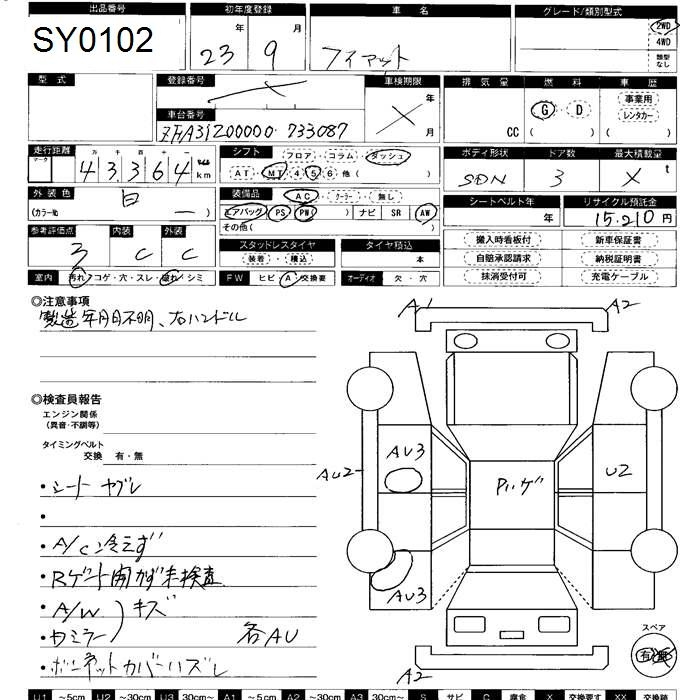 出品番号 初年度登録 車名 グレード/類別型式
SY0102 23年 9月 フィアット 2WD
4WD
類型なし
型式 登録番号 車検期限 排気量 燃料 車歴
年 G・D 事業用
車台番号 レンタカー
ZFA31200000 733087 X 月 CC ( ) ( )
走行距離 シフト フロア・コラム・ダッシュ ボディ形状 ドア数 最大積載量
マーク 万 千 百 十 一
43364 km AT・MT 4 5 6 他( ) SDN 3 X t
外装色 白 装備品 AC・クーラー・無し シートベルト年 リサイクル預託金
(カラーNo. ー ) エアバッグ( ) PS PW( ) ナビ SR AW 年 15,210円
その他( )
参考評価点 内装 外装 スタッドレスタイヤ タイヤ積込 搬入時看板付 新車保証書
3 C C 装着・積込 本 自賠承認請求 納税証明書
室内 汚れ・コゲ・穴・スレ・破れ・シミ FW ヒビ・A・交換要 オーディオ 欠・穴 抹消受付可 充電ケーブル
◎注意事項
製造年月日不明、右ハンドル
◎検査員報告
エンジン関係
(異音・不調等)
タイミングベルト
交換 有・無
・シート ヤブレ
・
・A/C冷えず
・Rゲート開かず未検査
・A/W キズ
・カミラー 各AU
・ボンネットカバーハズレ
A1 A2
AU3
AU2 U2
AU3
A2
スペア
有・無
U1 ~5cm U2 ~30cm U3 30cm~ A1 ~5cm A2 ~30cm A3 30cm~ S サビ C 腐食 X 交換要す XX 交換跡